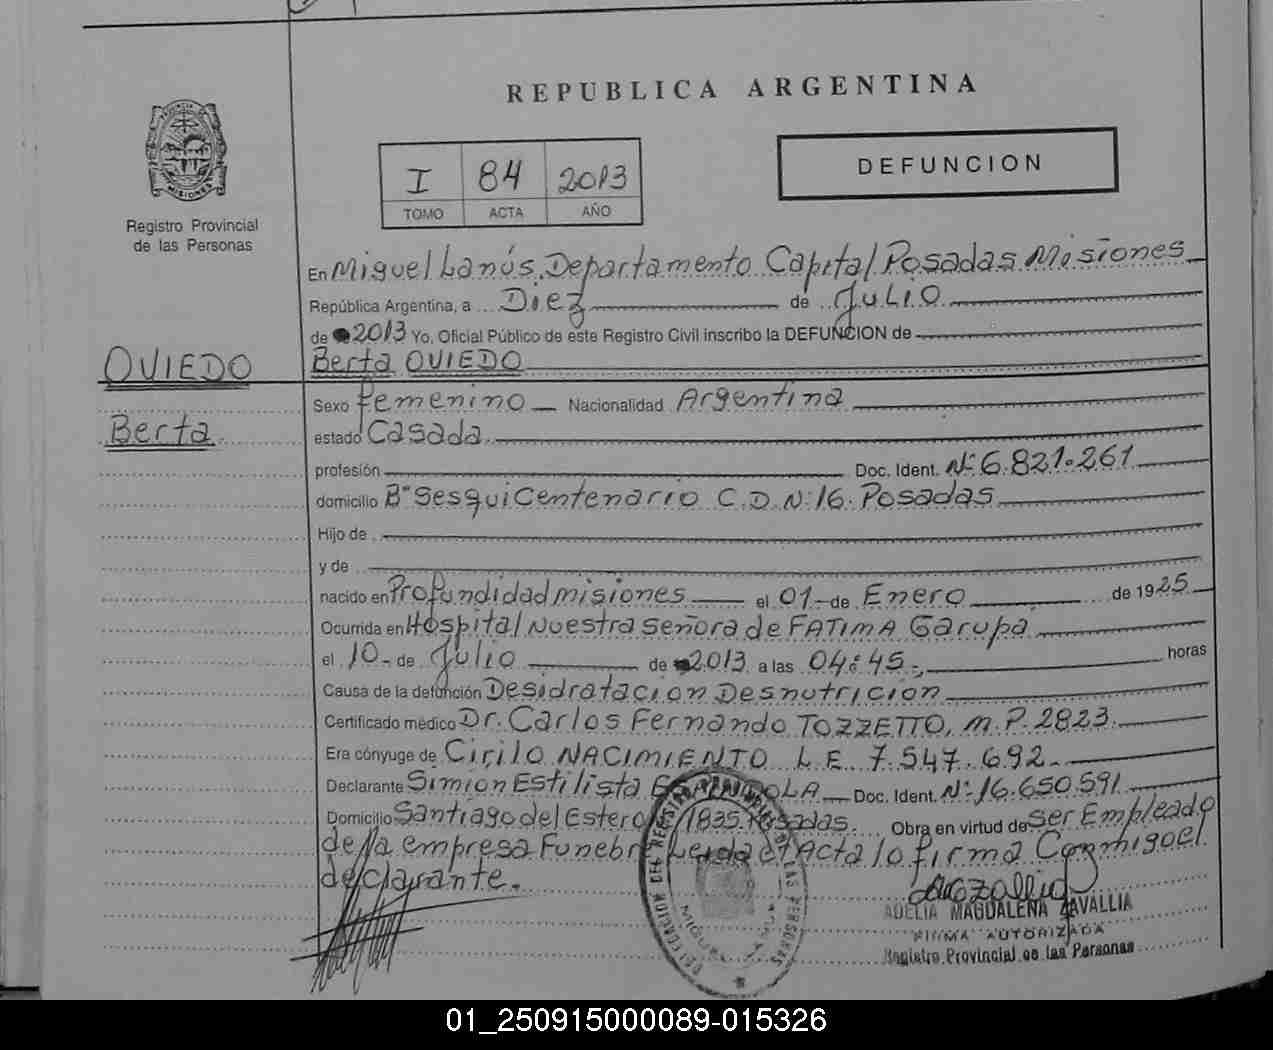 REPUBLICA ARGENTINA
PROVINCIA DE
MISIONES
Registro Provincial
de las Personas
I 84 2013
TOMO ACTA AÑO
DEFUNCION
En Miguel Lanús, Departamento Capital Posadas Misiones
República Argentina, a Diez de Julio
de 2013 Yo, Oficial Público de este Registro Civil inscribo la DEFUNCION de
OVIEDO
Berta OVIEDO
Sexo femenino Nacionalidad Argentina
Berta
estado Casada
profesión Doc. Ident. Nº 6.821.261
domicilio Bº Sesquicentenario C.D.N:16. Posadas
Hijo de
y de
nacido en Profundidad misiones el 01 - de Enero de 1925
Ocurrida en Hospital Nuestra señora de FATIMA Garupa
el 10 - de Julio de 2013 a las 04:45.- horas
Causa de la defunción Desidratacion Desnutricion
Certificado médico Dr. Carlos Fernando TOZZETTO, M.P. 2823.
Era cónyuge de Cirilo NACIMIENTO L.E. 7.547.692.
Declarante Simion Estilista Doc. Ident. Nº 16.650.591
Domicilio Santiago del Estero 1835. Posadas. Obra en virtud de Ser Empleado
de la empresa Funebre Leida el Acta lo firma Conmigo el
declarante.
ADELIA MAGDALENA ZAVALLIA
FIRMA AUTORIZADA
Registro Provincial de las Personas
DELEGACION DEL REGISTRO PROVINCIAL DE LAS PERSONAS
MIGUEL LANUS
01_250915000089-015326